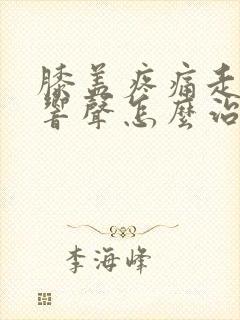 膝盖疼痛走
響聲怎麼治
李海峰